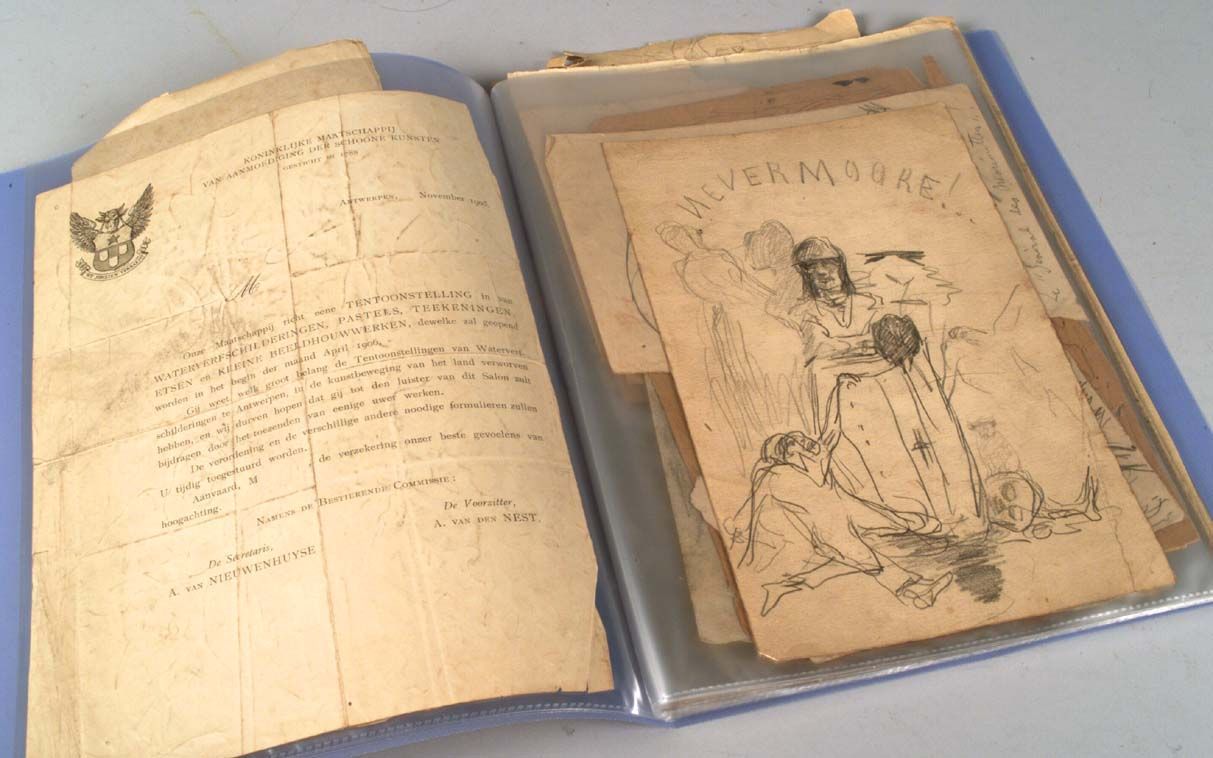 KONINKLIJKE MAATSCHAPPIJ
VAN AANMOEDIGING DER SCHOONE KUNSTEN
GESTICHT IN 1788
ANTWERPEN, November 1905.
M
Onze Maatschappij richt eene TENTOONSTELLING in van
WATERVERFSCHILDERINGEN, PASTELS, TEEKENINGEN,
ETSEN en KLEINE BEELDHOUWWERKEN, dewelke zal geopend
worden in het begin der maand April 1906.
Gij weet welk groot belang de Tentoonstellingen van Waterverf-
schilderingen te Antwerpen, in de kunstbeweging van het land verworven
hebben, en wij durven hopen dat gij tot den luister van dit Salon zult
bijdragen door het toezenden van eenige uwer werken.
De verordening en de verschillige andere noodige formulieren zullen
U tijdig toegestuurd worden.
Aanvaard, M de verzekering onzer beste gevoelens van
hoogachting.
NAMENS DE BESTIERENDE COMMISSIE:
De Voorzitter,
A. VAN DEN NEST.
De Secretaris,
A. VAN NIEUWENHUYSE
NEVERMOORE!...